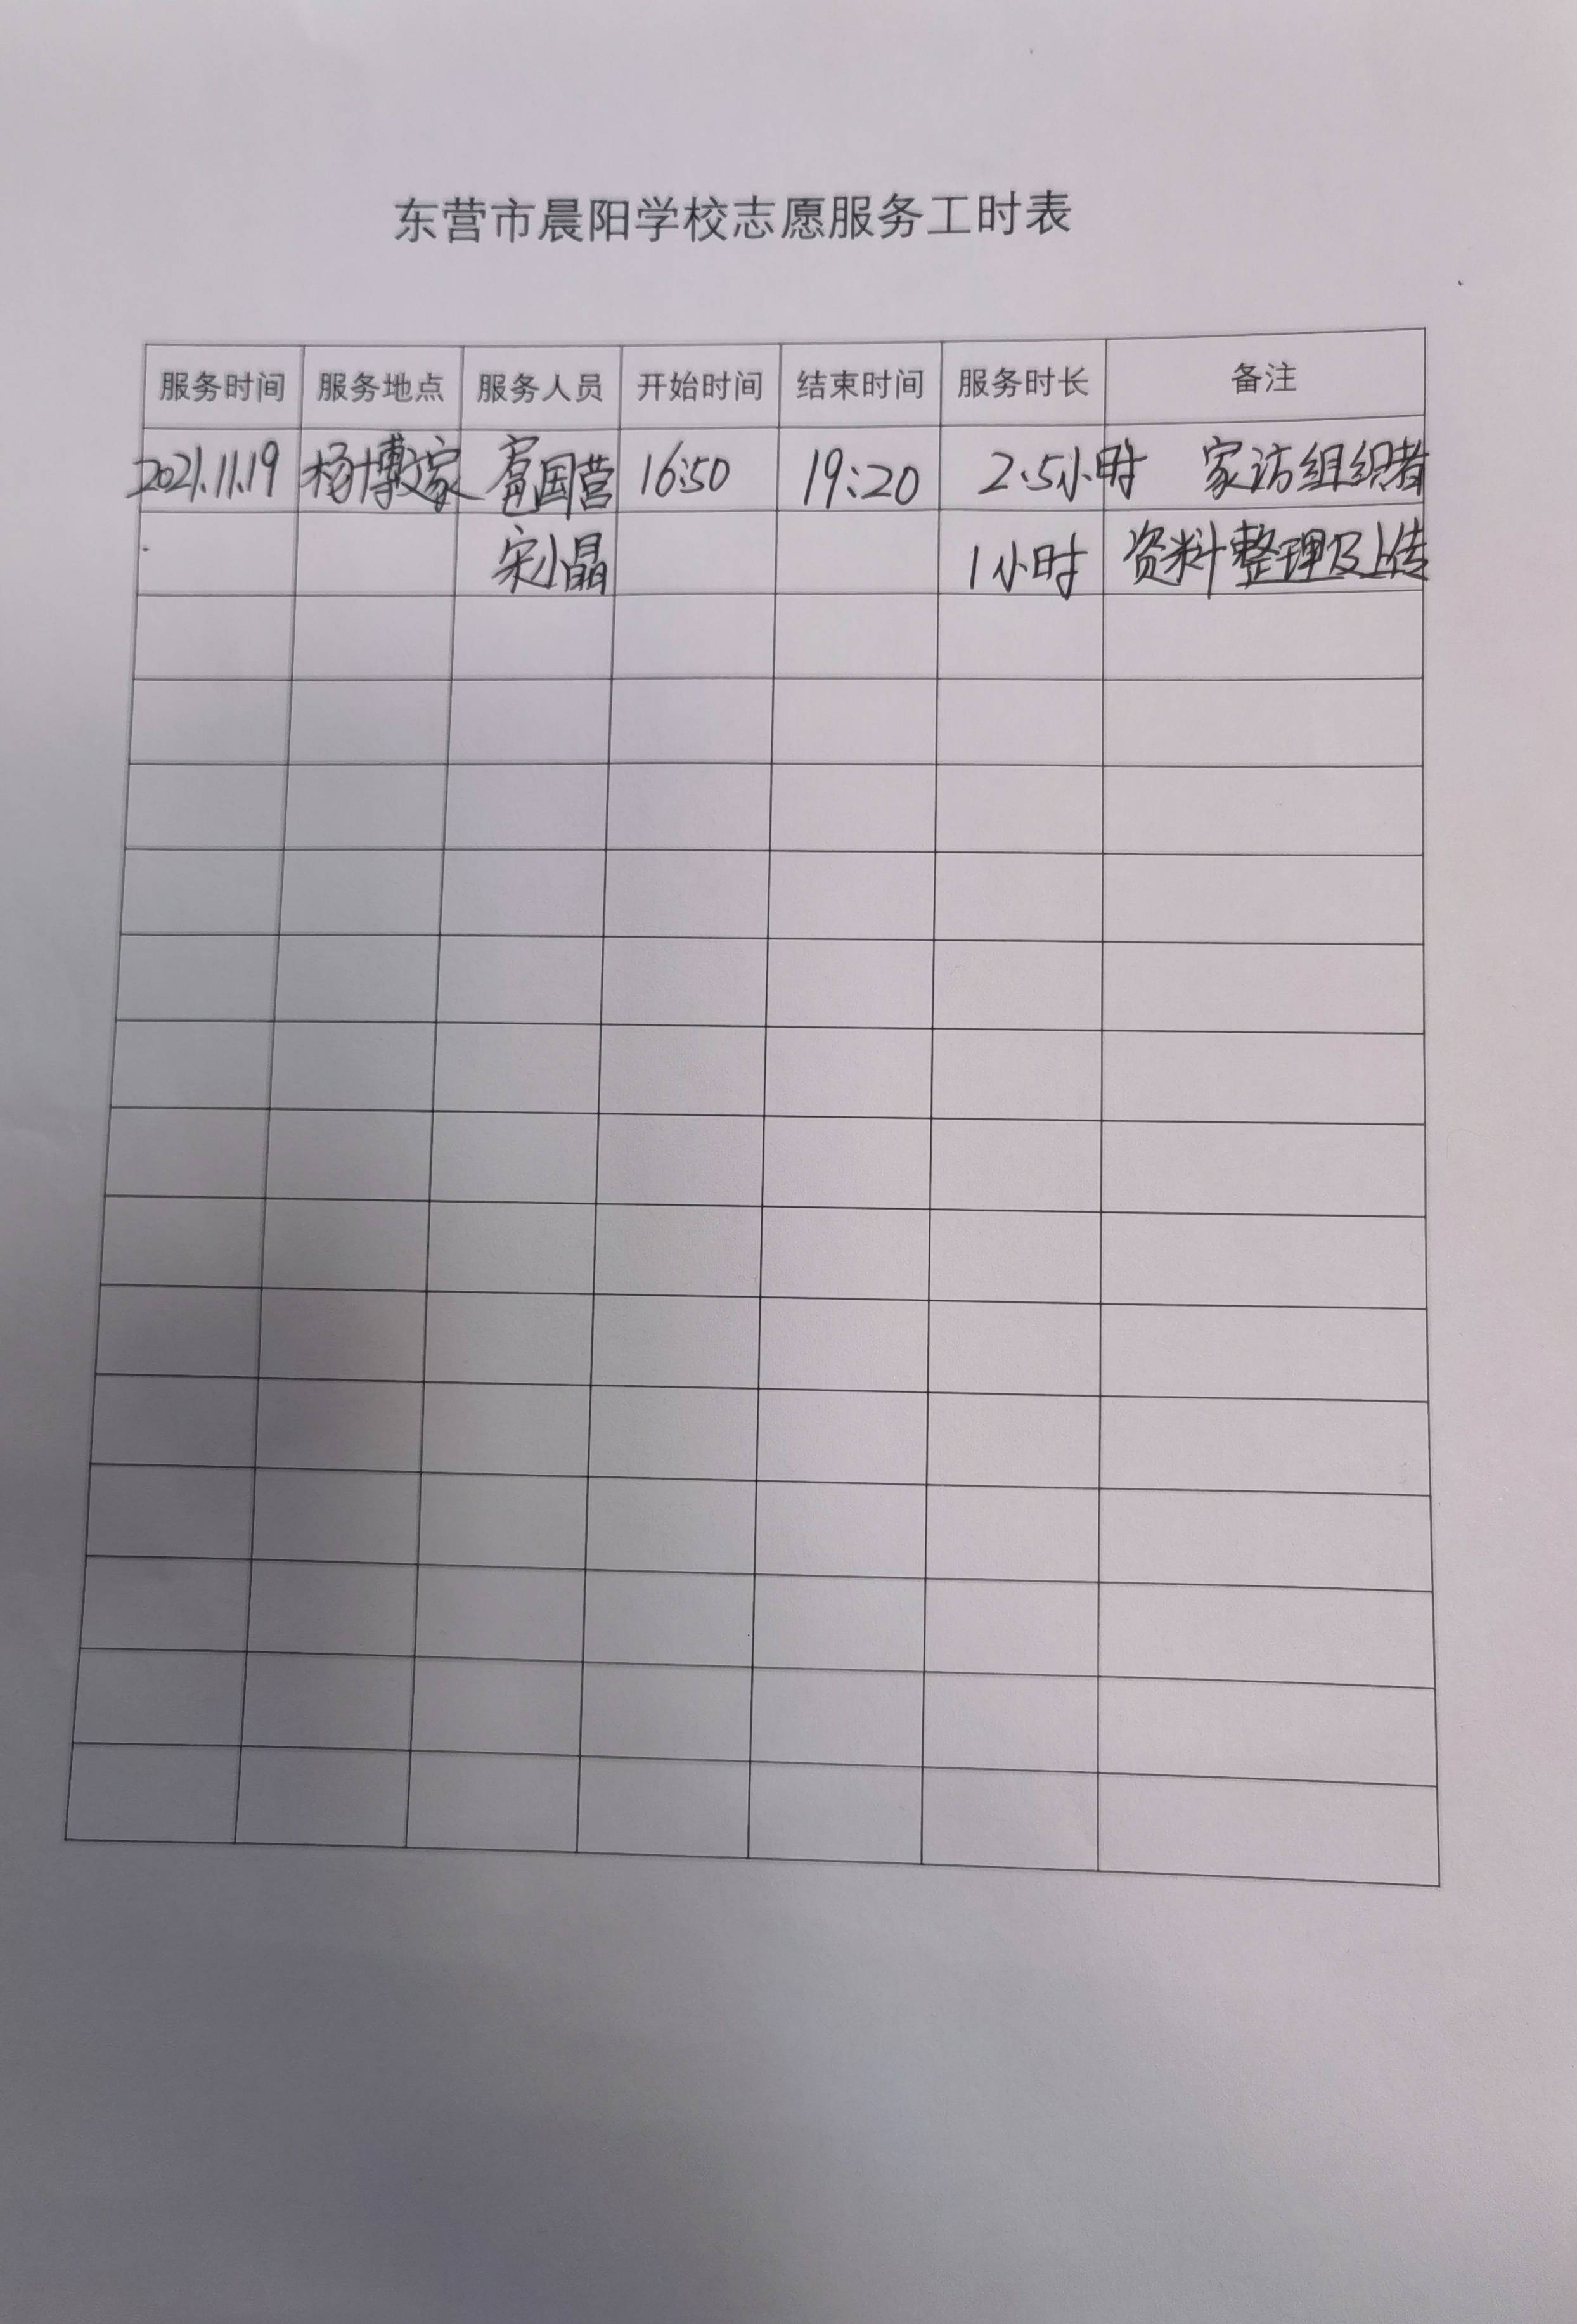 东营市晨阳学校志愿服务工时表
服务时间 服务地点 服务人员 开始时间 结束时间 服务时长 备注
2021.11.19 杨博文家 国营 16:50 19:20 2.5小时 家访组织者
宋小晶 1小时 资料整理及上传